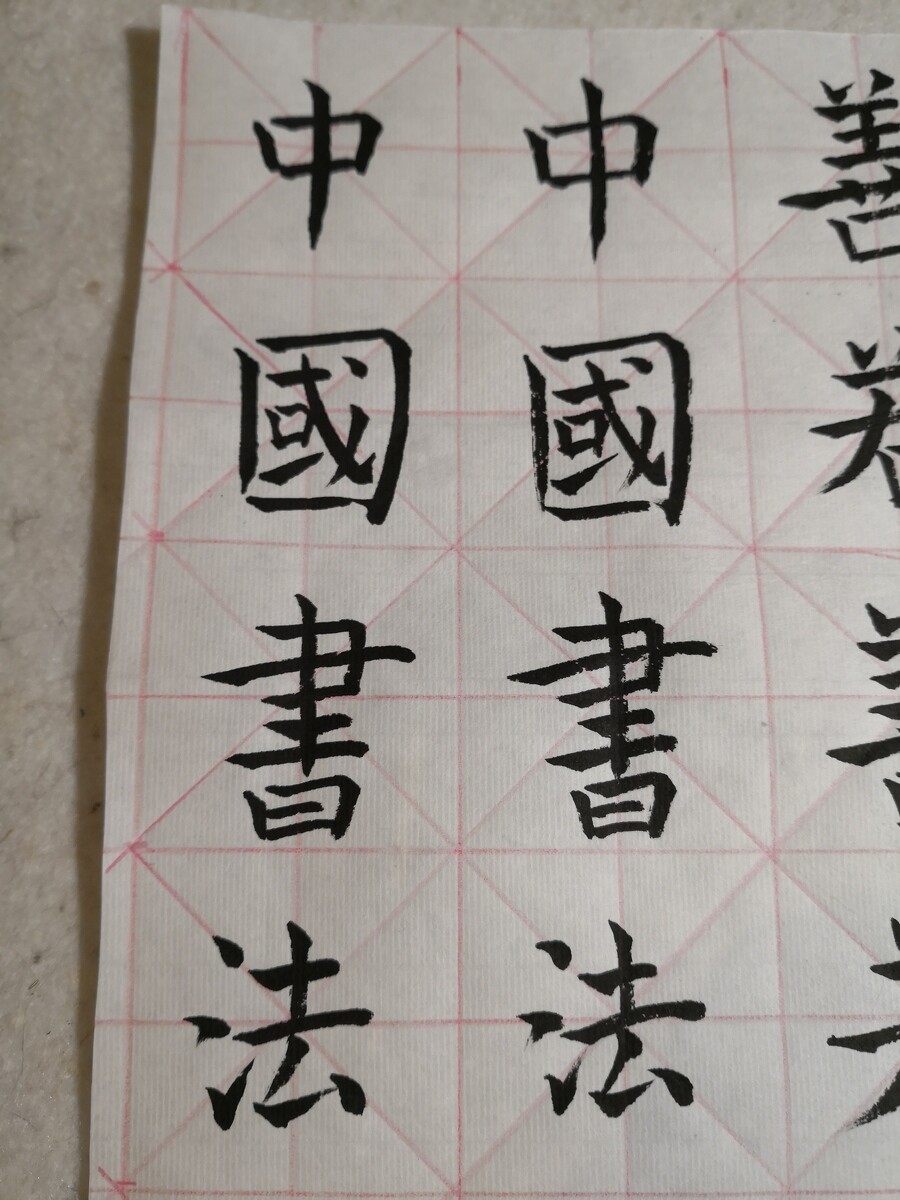 中國書法
中國書法